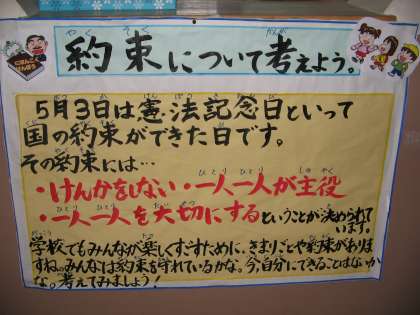 約束について考えよう。
5月3日は憲法記念日といって
国の約束ができた日です。
その約束には…
・けんかをしない・一人一人が主役
・一人一人を大切にするということが決められて
います。
学校でもみんなが楽しくすごすために、きまりごとや約束がありま
すね。みんなは約束を守れているかな。今、自分にできることはないか
な。考えてみましょう!